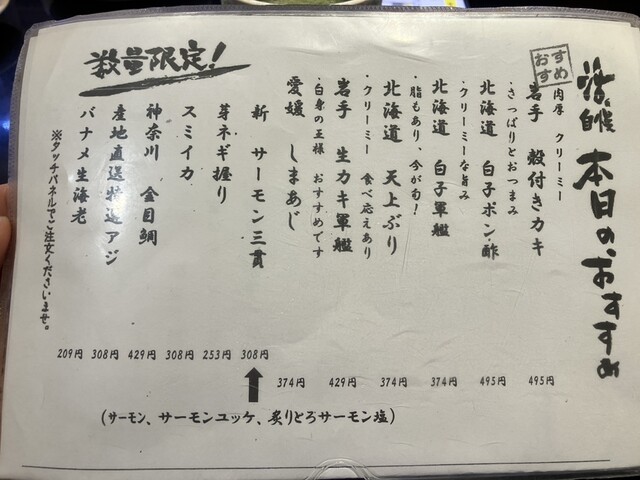 本日のおすすめ
おすすめ
肉厚 クリーミー
岩手 殻付きカキ 495円
・さっぱりとおつまみ
北海道 白子ポン酢 495円
・クリーミーな旨み
北海道 白子軍艦 374円
・脂もあり、今が旬!
北海道 天上ぶり 374円
・クリーミー 食べ応えあり
岩手 生カキ軍艦 429円
・白身の王様 おすすめです
愛媛 しまあじ 374円
数量限定!
新 サーモン三貫 308円
(サーモン、サーモンユッケ、炙りとろサーモン塩)
芽ネギ握り 253円
スミイカ 308円
神奈川 金目鯛 429円
産地直送特選アジ 308円
バナメ生海老 209円
※タッチパネルでご注文くださいませ。